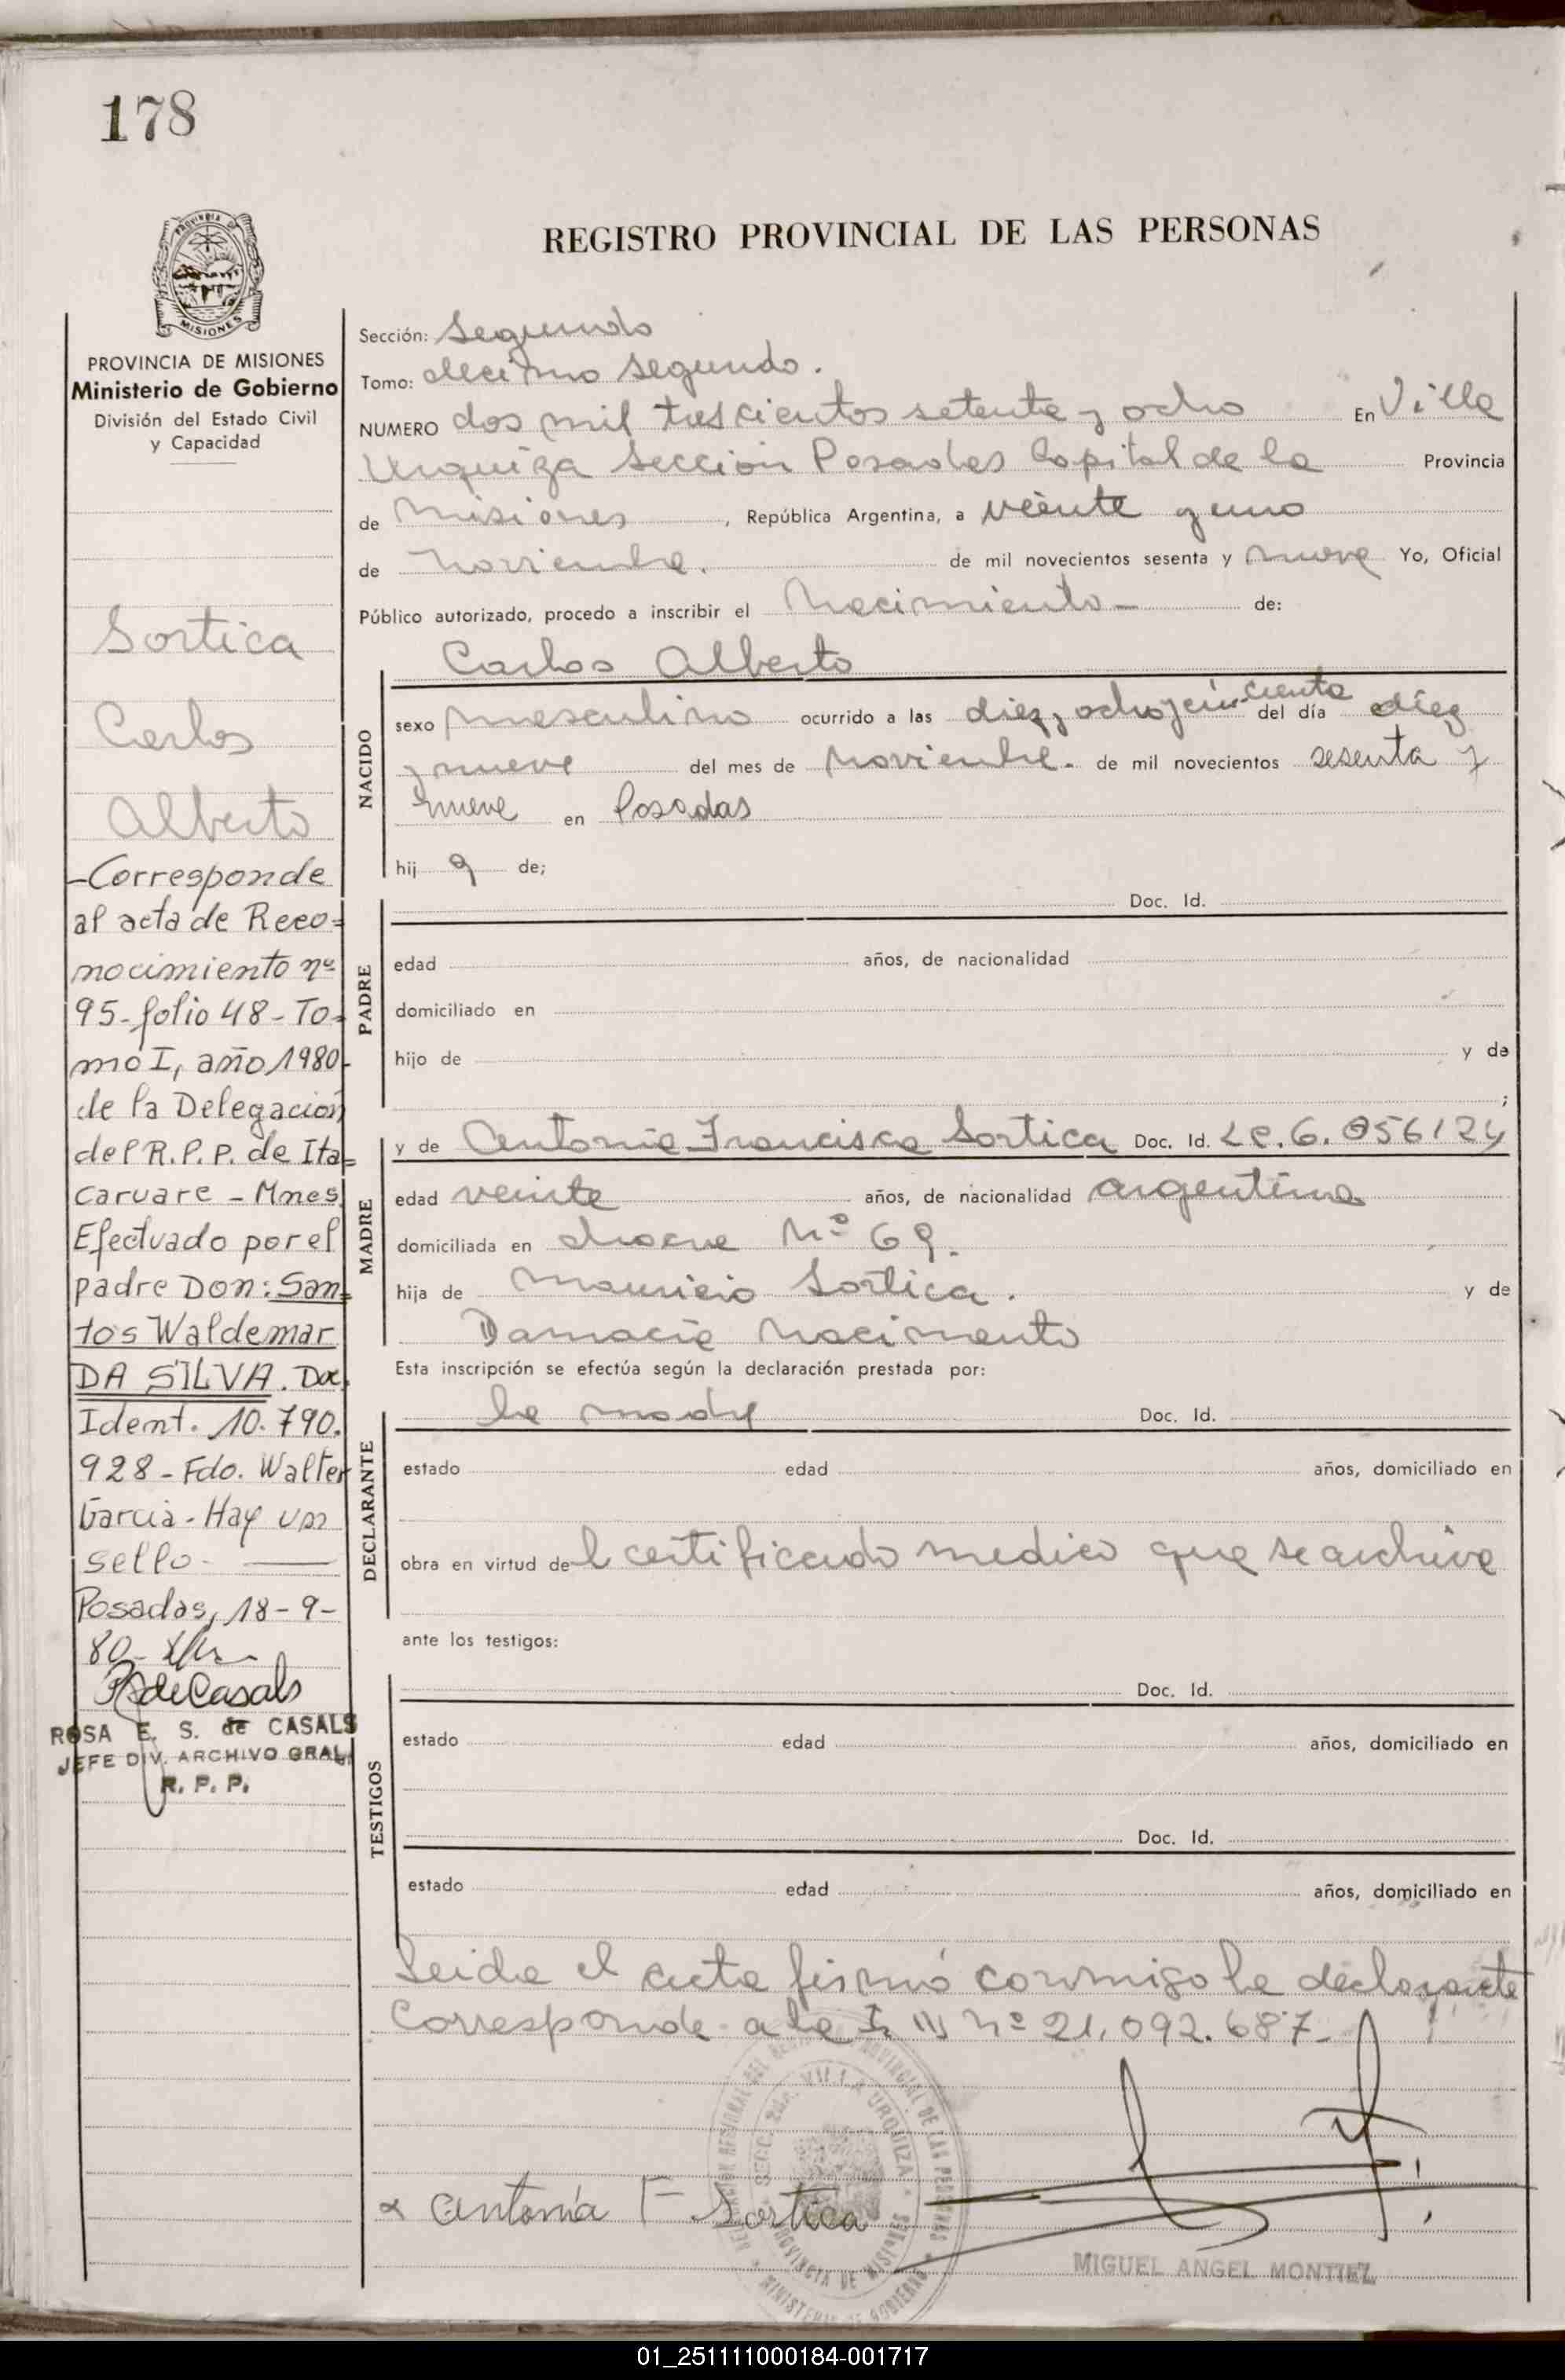 178
PROVINCIA
MISIONES
REGISTRO PROVINCIAL DE LAS PERSONAS
PROVINCIA DE MISIONES
Ministerio de Gobierno
División del Estado Civil
y Capacidad
Sortica
Carlos
Alberto
-Corresponde
al acta de Reco=
nocimiento nº
95-folio 48-To-
mo I, año 1980-
de la Delegación
del R.P.P. de Ita=
caruare - Mnes
Efectuado por el
padre Don: San=
tos Waldemar
DA SILVA. Doc.
Ident. 10.790.
928-Fdo. Walter
Garcia-Hay un
sello-
Posadas, 18-9-
80-
R de Casals
ROSA E. S. de CASALS
JEFE DIV. ARCHIVO GRAL.
R. P. P.
Sección: Segundo
Tomo: decimo segundo.
NUMERO dos mil trescientos setenta y ocho En Villa
Urquiza Sección Posadas Capital de la Provincia
de Misiones, República Argentina, a veinte y uno
de noviembre. de mil novecientos sesenta y nueve Yo, Oficial
Público autorizado, procedo a inscribir el Nacimiento- de:
NACIDO
Carlos Alberto
sexo masculino ocurrido a las diez y ocho y cin-cuenta del día diez
y nueve del mes de noviembre. de mil novecientos sesenta y
nueve en Posadas
hij o de;
PADRE
Doc. Id.
edad años, de nacionalidad
domiciliado en
hijo de y de
;
MADRE
y de Antonia Francisca Sortica Doc. Id. Lc. 6. 056124
edad veinte años, de nacionalidad argentina
domiciliada en chacra Nº 69.
hija de Mauricio Sortica. y de
Damacia Nacimento
Esta inscripción se efectúa según la declaración prestada por:
DECLARANTE
la madre Doc. Id.
estado edad años, domiciliado en
obra en virtud del certificado medico que se archiva
ante los testigos:
TESTIGOS
Doc. Id.
estado edad años, domiciliado en
Doc. Id.
estado edad años, domiciliado en
Leida el acta firmó conmigo la declarante
Corresponde a la Nº 21.092.687-
SECC. 2da. VILLA URQUIZA
PROVINCIA DE MISIONES
MINISTERIO DE GOBIERNO
Antonia F Sortica
MIGUEL ANGEL MONTIEL
01_251111000184-001717